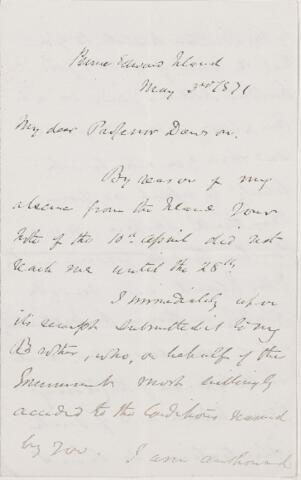 Prince Edward Island
May 3rd 1871
My dear Professor Dawson.
By reason of my
absence from the Island your
Note of the 10th April did not
reach me until the 28th.
I immediately upon
its receipt submitted it to my
Brother, who, on behalf of the
Government most willingly
acceded to the Conditions named
by you. I am authorized